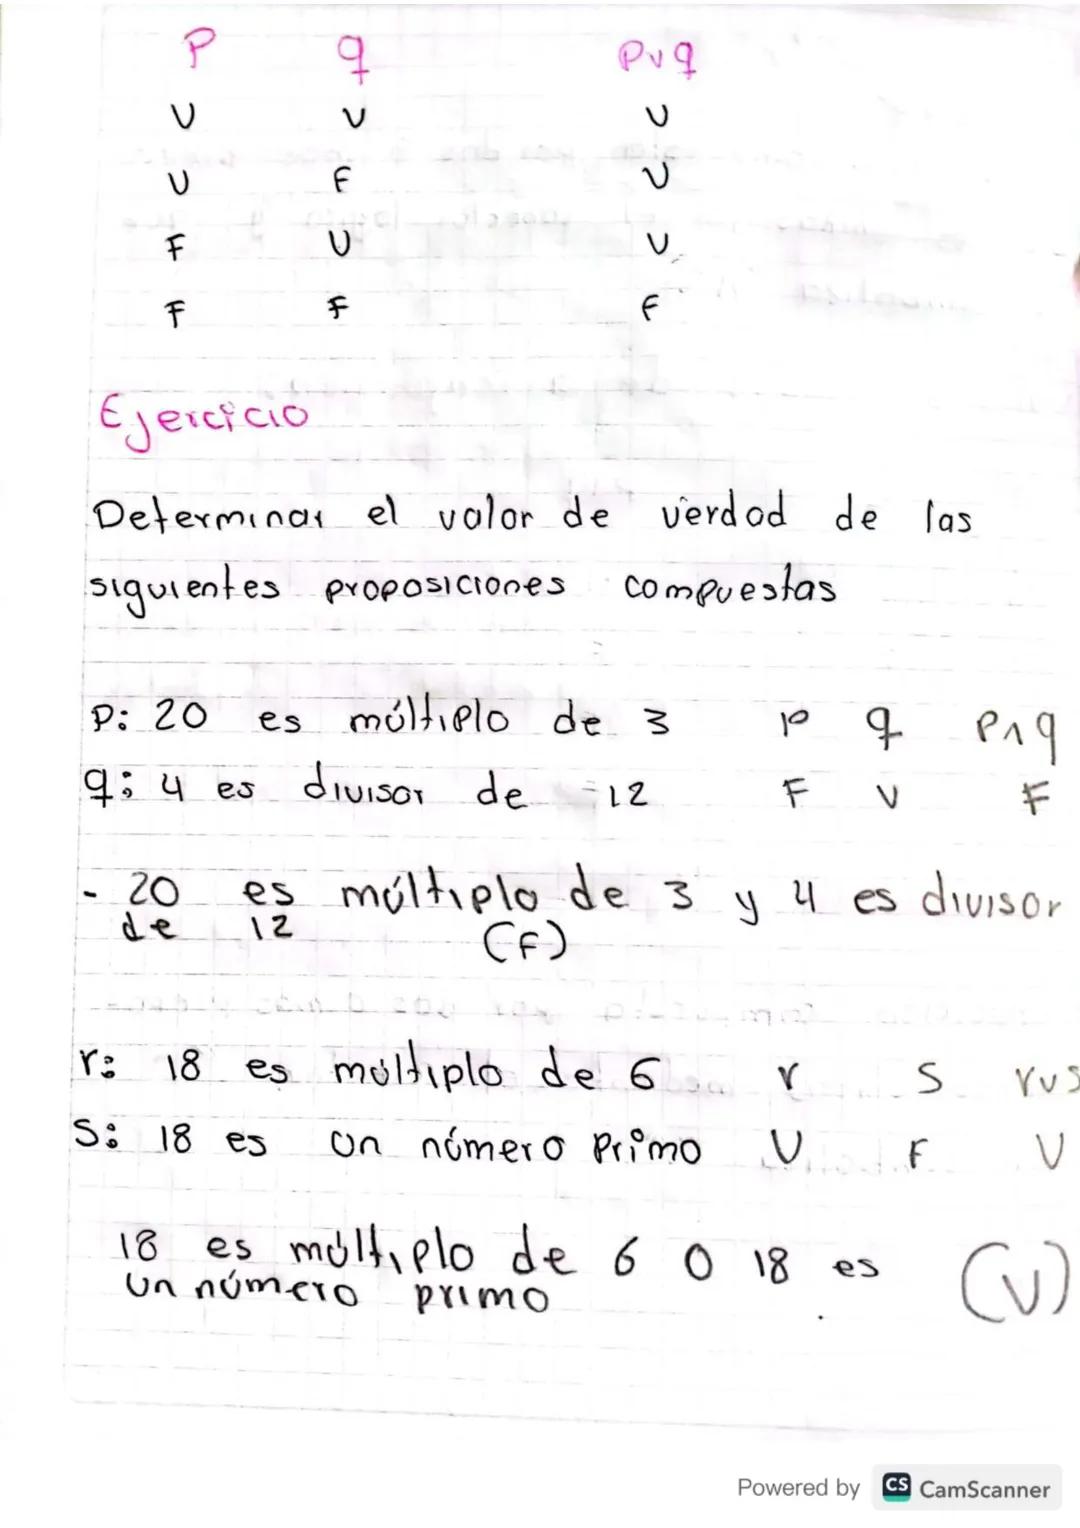 P q p∨q
V V V
V F V
F V V
F F F
Ejercicio
Determinar el valor de verdad de las
siguientes proposiciones compuestas
p: 20 es múltiplo de 3 p q p∧q
q: 4 es divisor de 12 F V F
- 20 es múltiplo de 3 y 4 es divisor
de 12 (F)
r: 18 es múltiplo de 6 r s r∨s
s: 18 es un número primo V F V
18 es múltiplo de 6 o 18 es (V)
un número primo
Powered by CS CamScanner